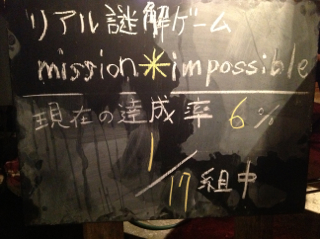 リアル謎解ゲーム
mission*impossible
現在の達成率 6%
1/17組中